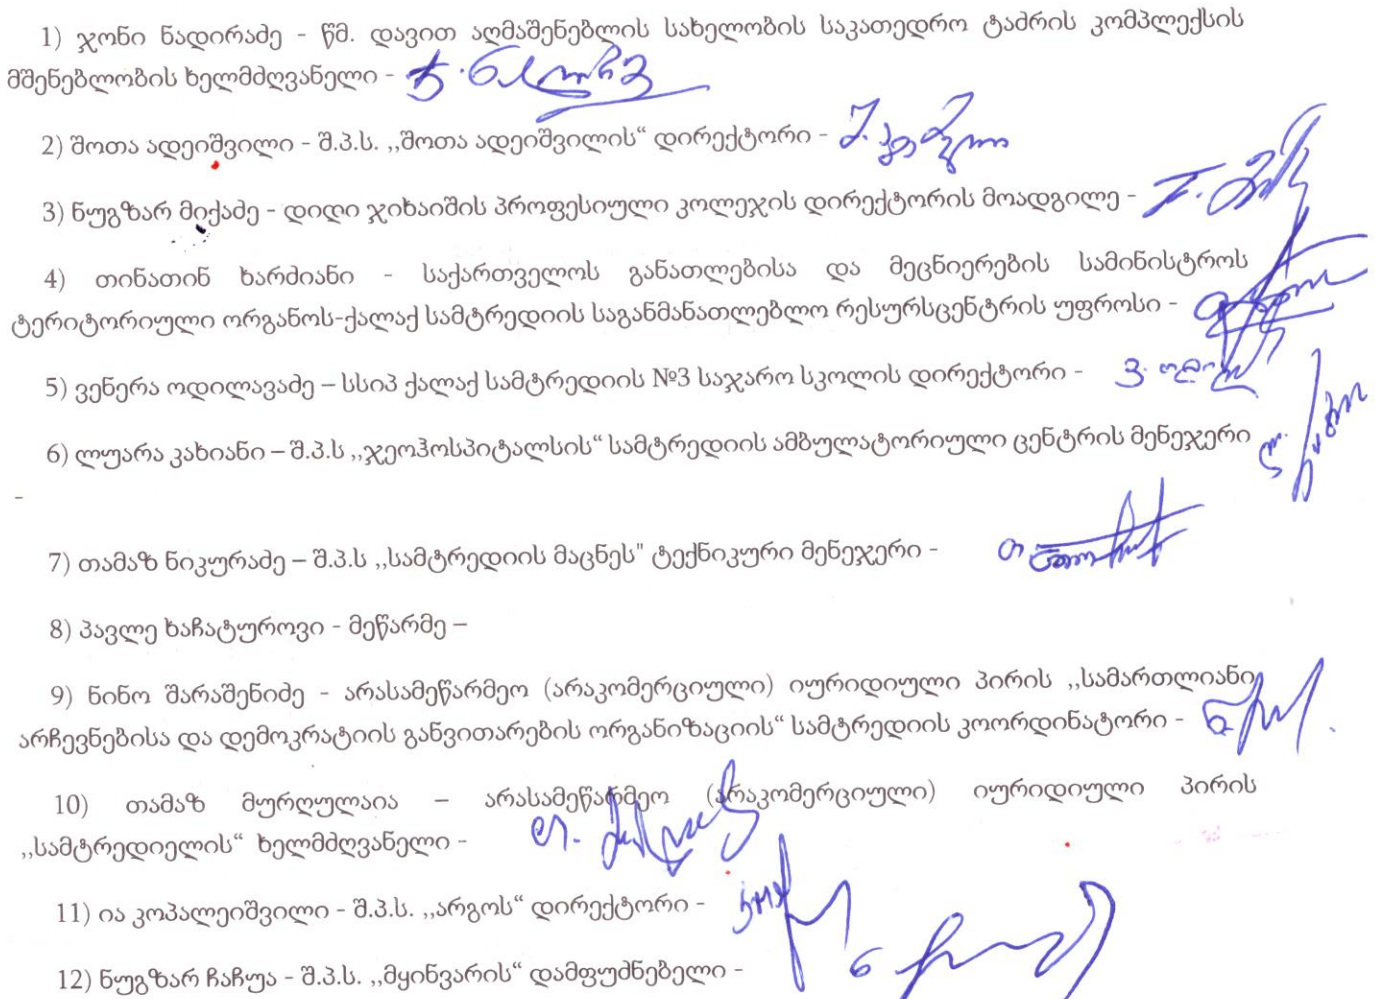 1) ჯონი ნადირაძე - წმ. დავით აღმაშენებლის სახელობის საკათედრო ტაძრის კომპლექსის
მშენებლობის ხელმძღვანელი -
2) შოთა ადეიშვილი - შ.პ.ს. ,,შოთა ადეიშვილის“ დირექტორი -
3) ნუგზარ მიქაძე - დიდი ჯიხაიშის პროფესიული კოლეჯის დირექტორის მოადგილე -
4) თინათინ ხარძიანი - საქართველოს განათლებისა და მეცნიერების სამინისტროს
ტერიტორიული ორგანოს-ქალაქ სამტრედიის საგანმანათლებლო რესურსცენტრის უფროსი -
5) ვენერა ოდილავაძე – სსიპ ქალაქ სამტრედიის №3 საჯარო სკოლის დირექტორი -
6) ლუარა კახიანი – შ.პ.ს ,,ჯეოჰოსპიტალსის“ სამტრედიის ამბულატორიული ცენტრის მენეჯერი
-
7) თამაზ ნიკურაძე – შ.პ.ს ,,სამტრედიის მაცნეს" ტექნიკური მენეჯერი -
8) პავლე ხაჩატუროვი - მეწარმე –
9) ნინო შარაშენიძე - არასამეწარმეო (არაკომერციული) იურიდიული პირის ,,სამართლიანი
არჩევნებისა და დემოკრატიის განვითარების ორგანიზაციის“ სამტრედიის კოორდინატორი -
10) თამაზ მურღულაია – არასამეწარმეო (არაკომერციული) იურიდიული პირის
,,სამტრედიელის“ ხელმძღვანელი -
11) ია კოპალეიშვილი - შ.პ.ს. ,,არგოს“ დირექტორი -
12) ნუგზარ ჩაჩუა - შ.პ.ს. ,,მყინვარის“ დამფუძნებელი -